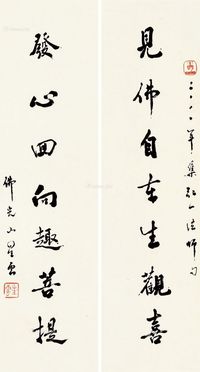 二〇〇〇年集弘一法師句
見佛自在生觀喜
發心回向趣菩提
佛光山星雲